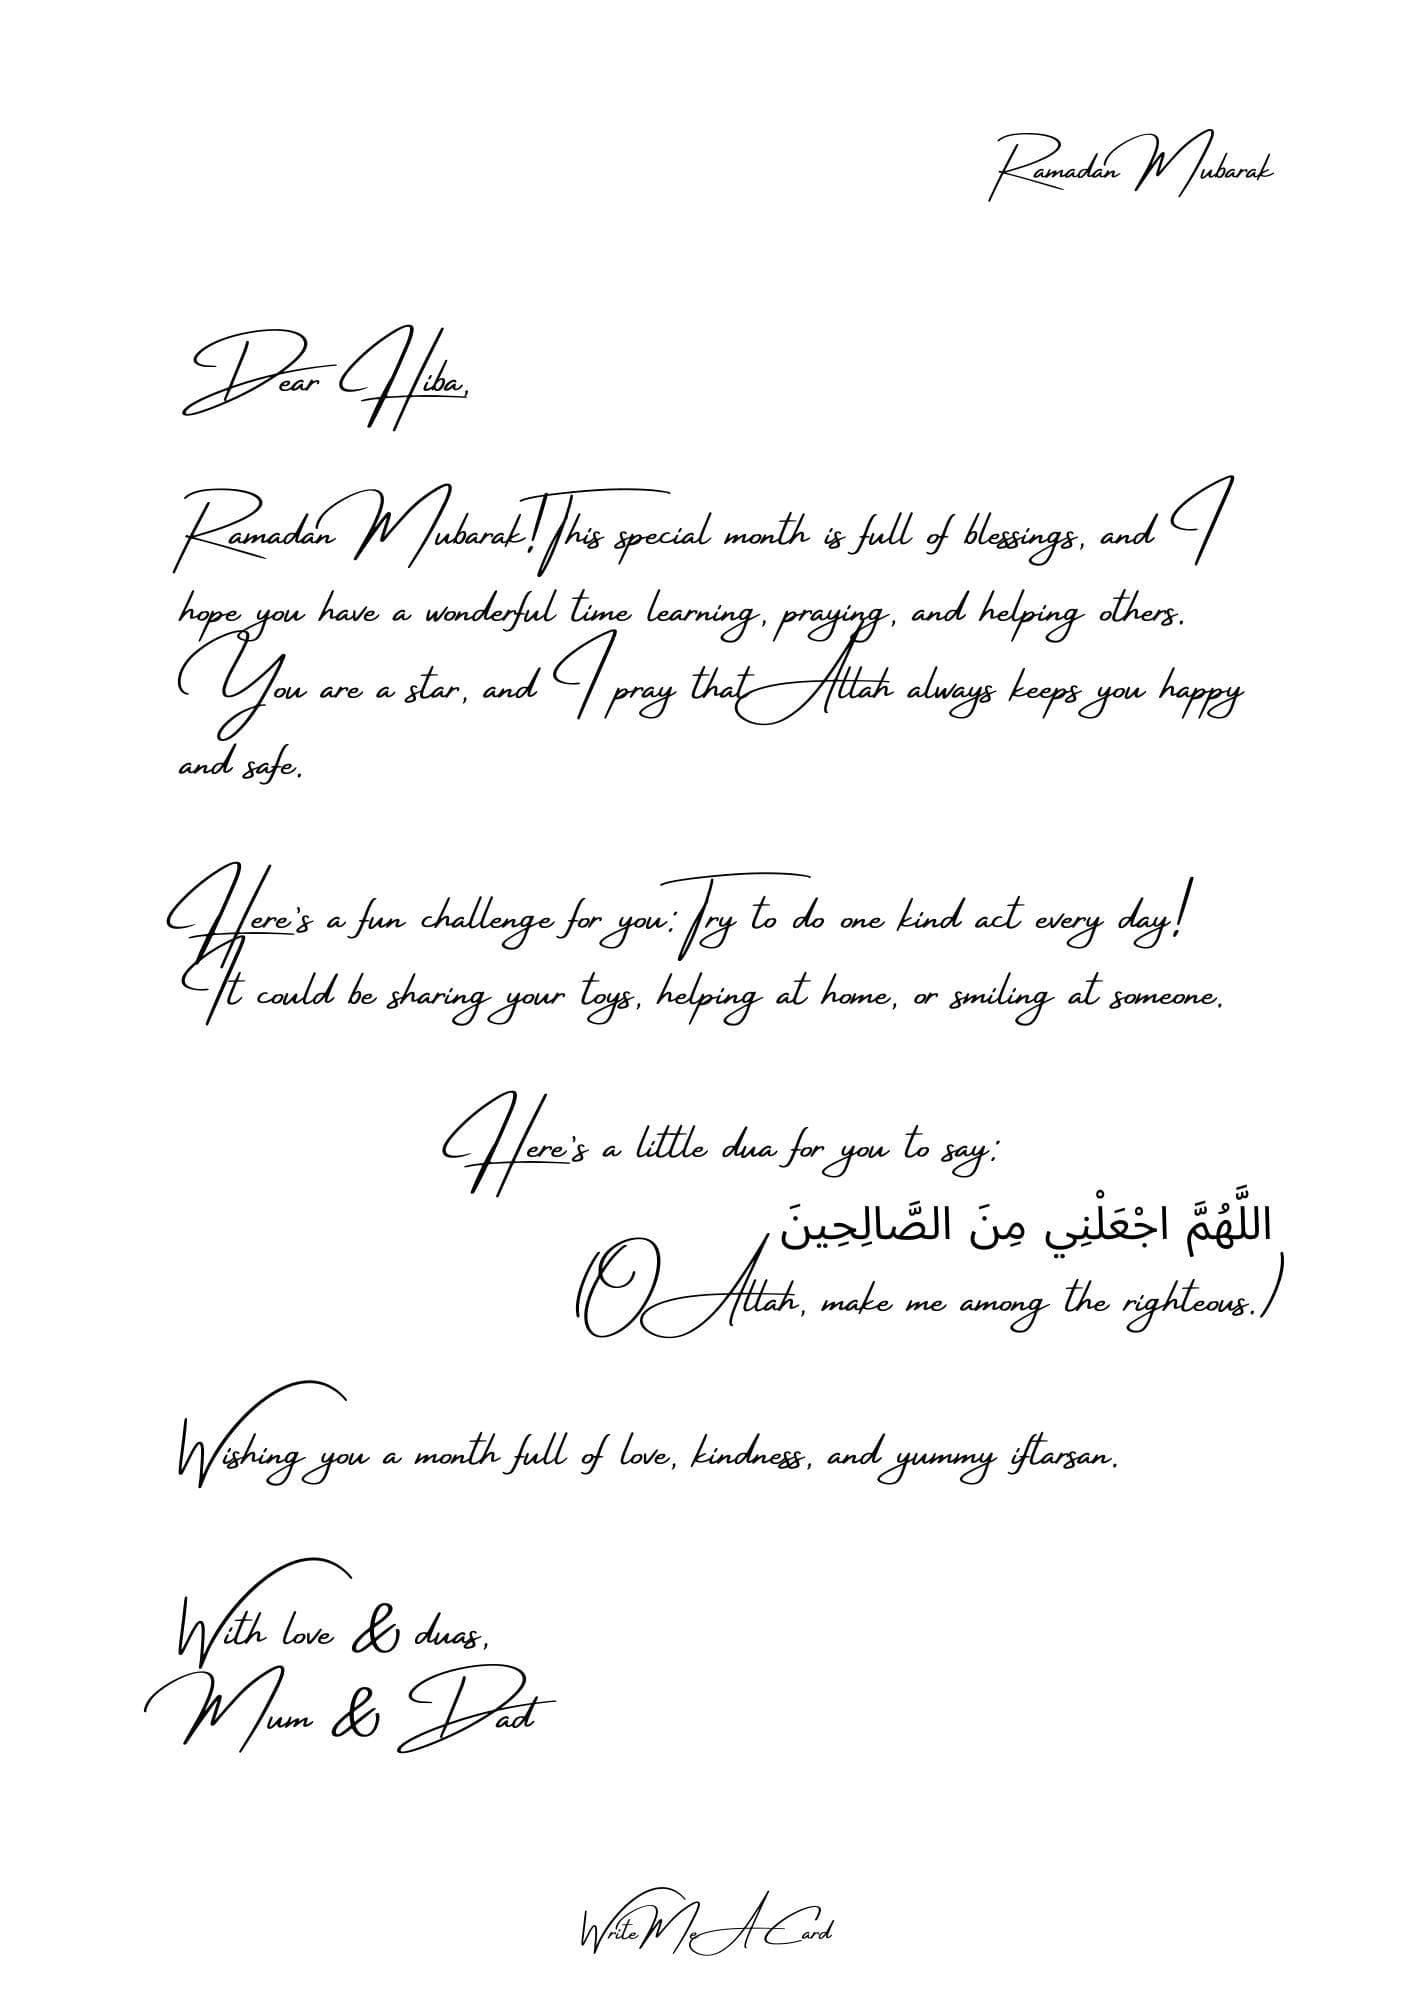 Ramadan Mubarak
Dear Hiba,
Ramadan Mubarak! This special month is full of blessings, and I
hope you have a wonderful time learning, praying, and helping others.
You are a star, and I pray that Allah always keeps you happy
and safe.
Here's a fun challenge for you: Try to do one kind act every day!
It could be sharing your toys, helping at home, or smiling at someone.
Here's a little dua for you to say:
اللَّهُمَّ اجْعَلْنِي مِنَ الصَّالِحِينَ
(O Allah, make me among the righteous.)
Wishing you a month full of love, kindness, and yummy iftarsan.
With love & duas,
Mum & Dad
Write Me A Card